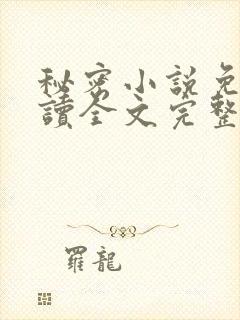 秘密小說免
讀全文完整
羅龍